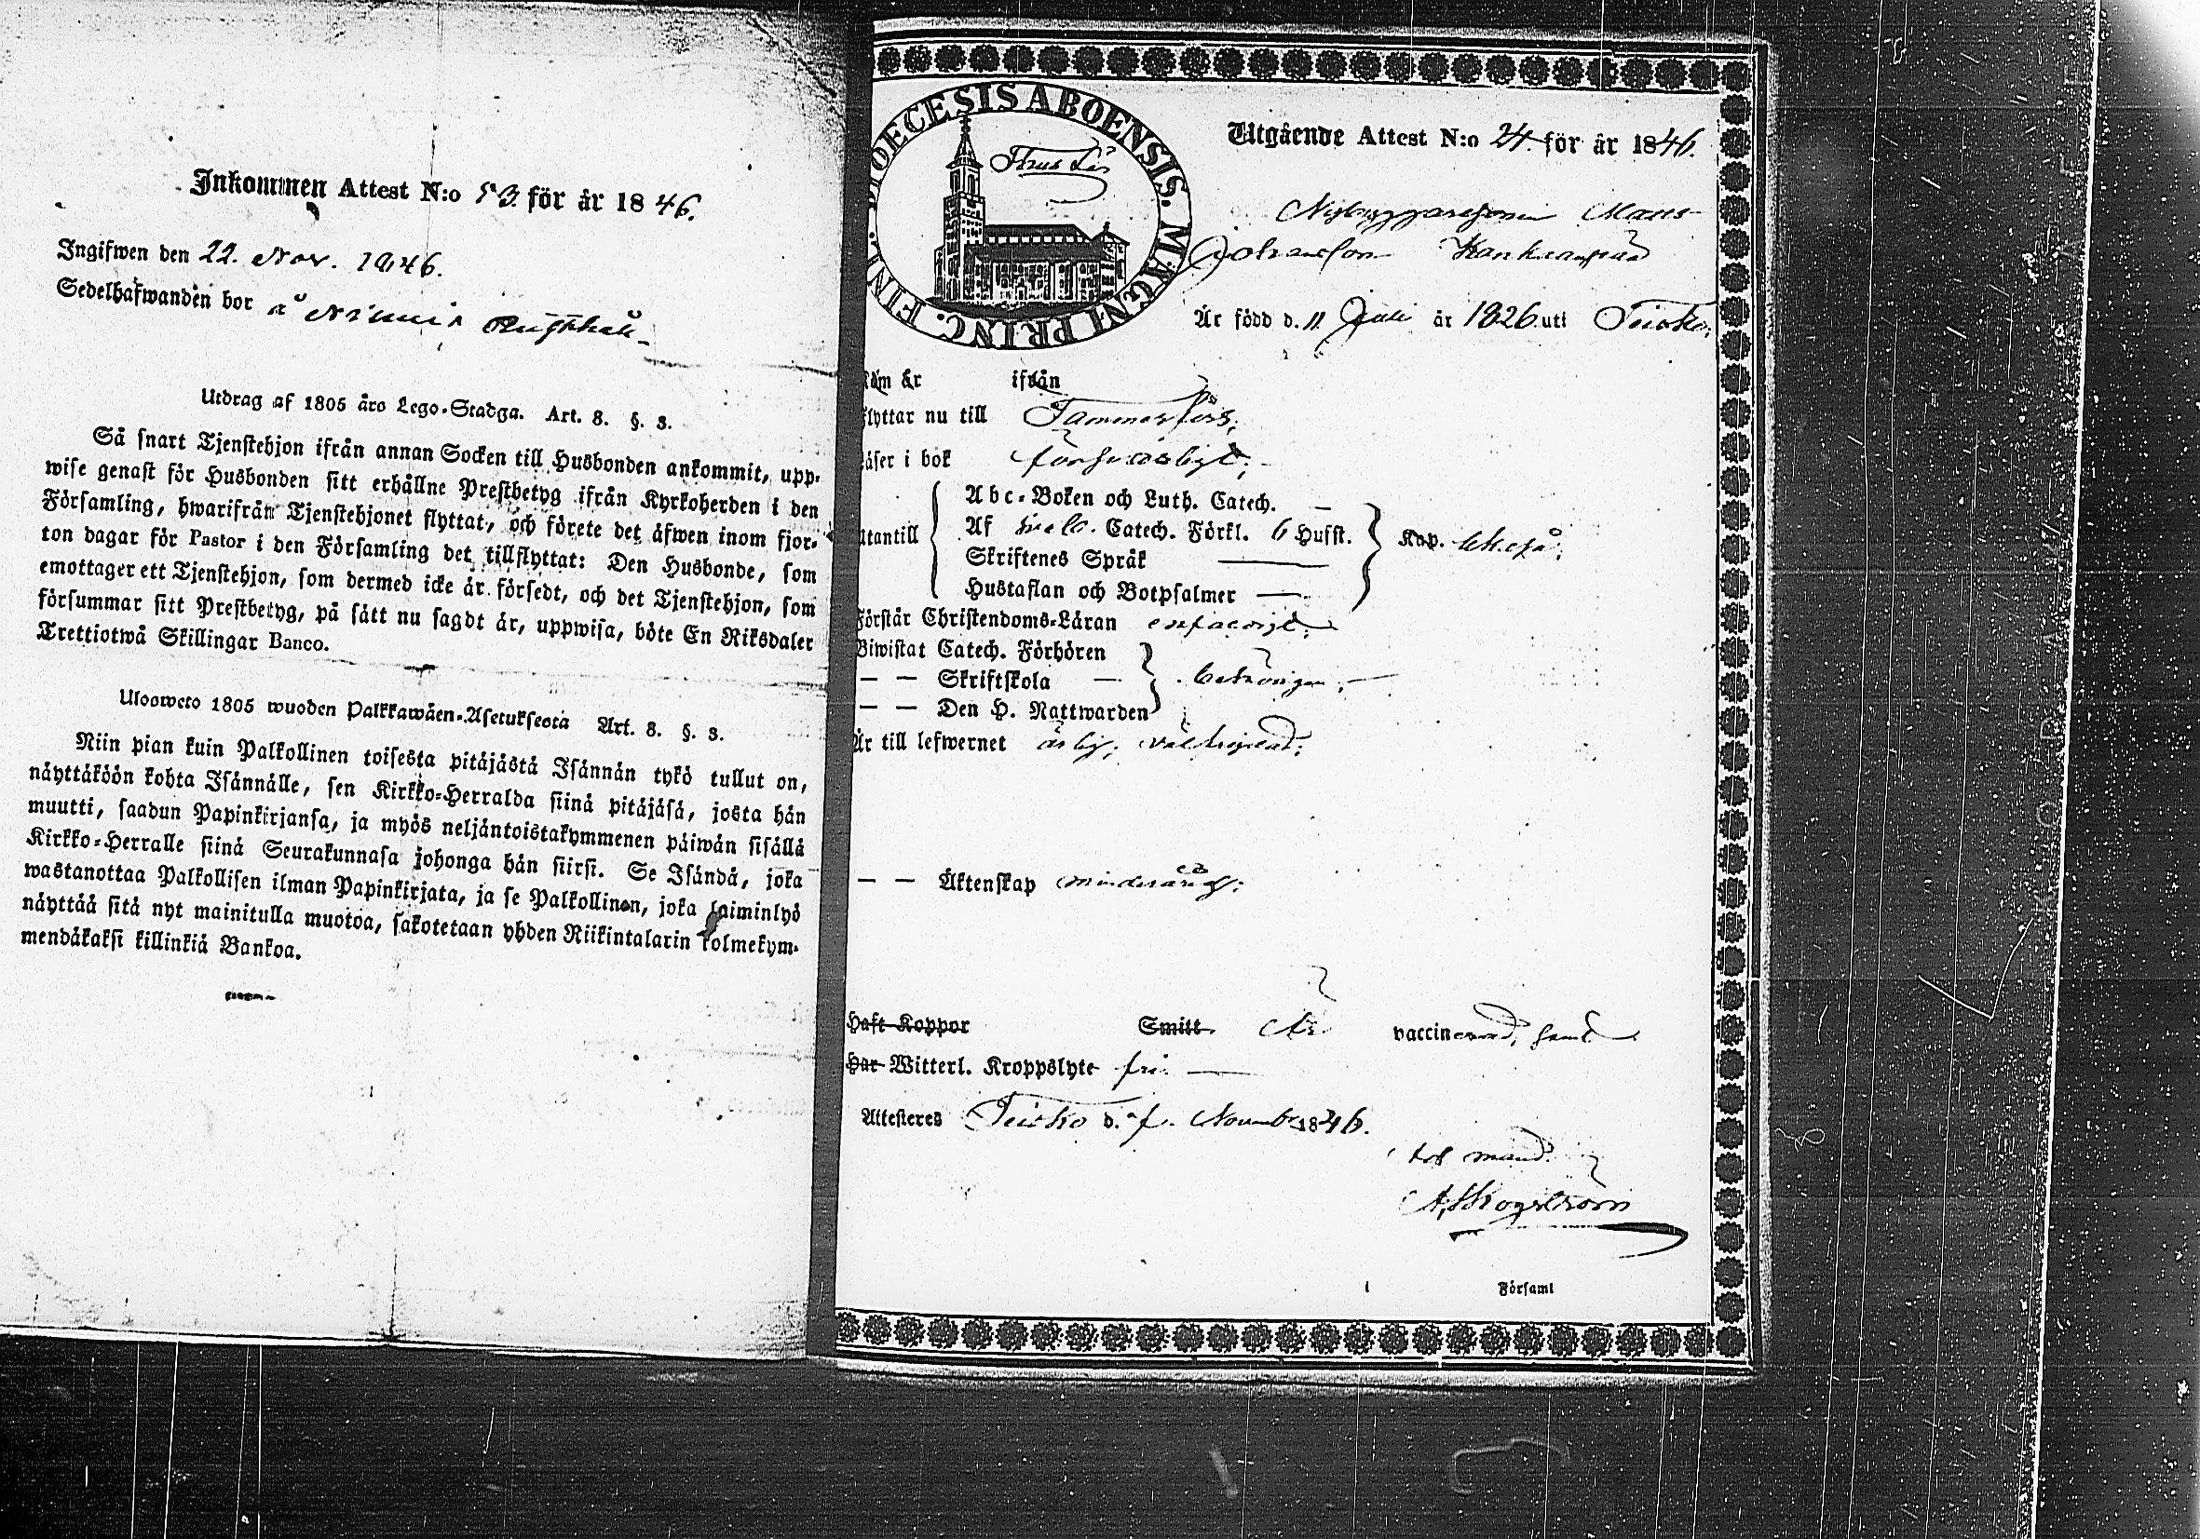 Inkommen Attest N:o 53. för år 1846.
Ingifwen den 22. Nov. 1846.
Sedelhafwanden bor å
Utdrag af 1805 års Lego-Stadga. Art. 8. §. 3.
Så snart Tjenstehjon ifrån annan Socken till Husbonden ankommit, upp-
wise genast för Husbonden sitt erhållne Prestbetyg ifrån Kyrkoherden i den
Församling, hwarifrån Tjenstehjonet flyttat, och förete det äfwen inom fjor-
ton dagar för Pastor i den Församling det tillflyttat: Den Husbonde, som
emottager ett Tjenstehjon, som dermed icke är försedt, och det Tjenstehjon, som
försummar sitt Prestbetyg, på sätt nu sagdt är, uppwisa, böte En Riksdaler
Trettiotwå Skillingar Banco.
Ulosweto 1805 wuoden Palkkawäen-Asetuksesta Art. 8. §. 3.
Niin pian kuin Palkollinen toisesta pitäjästä Isännän tykö tullut on,
näyttäköön kohta Isännälle, sen Kirkko-Herralda siinä pitäjäsä, josta hän
muutti, saadun Papinkirjansa, ja myös neljäntoistakymmenen päiwän sisällä
Kirkko-Herralle siinä Seurakunnasa johonga hän siirsi. Se Isändä, joka
wastanottaa Palkollisen ilman Papinkirjata, ja se Palkollinen, joka laiminlyö
näyttää sitä nyt mainitulla muotoa, sakotetaan yhden Riikintalarin kolmekym-
mendäkaksi killinkiä Bankoa.
DIOECESIS ABOENSIS. MAGNI PRINC. FINL.
Utgående Attest N:o 24. för år 1846.
Nybyggaresonen Matts
Johansson
Är född d. 11 Juli år 1826. uti Teisko;
Kom år ifrån
Flyttar nu till Tammerfors;
Läser i bok försvarligt;
Abc-Boken och Luth. Catech. —
Utantill Af Catech. Förkl. 6 Husst. Kap.
Skriftenes Språk —
Hustaflan och Botpsalmer —
Förstår Christendoms-Läran enfaldigt;
Biwistat Catech. Förhören
— — Skriftskola —
— — Den H. Nattwarden
Är till lefwernet ärlig; välfrejdad;
— — Äktenskap minderårig;
Haft Koppor Smitt. Är vaccinerad, samt
Har Witterl. Kroppslyte fri. —
Attesteres Teisko d. 7. Novemb. 1846.
A. Skogström
Församl